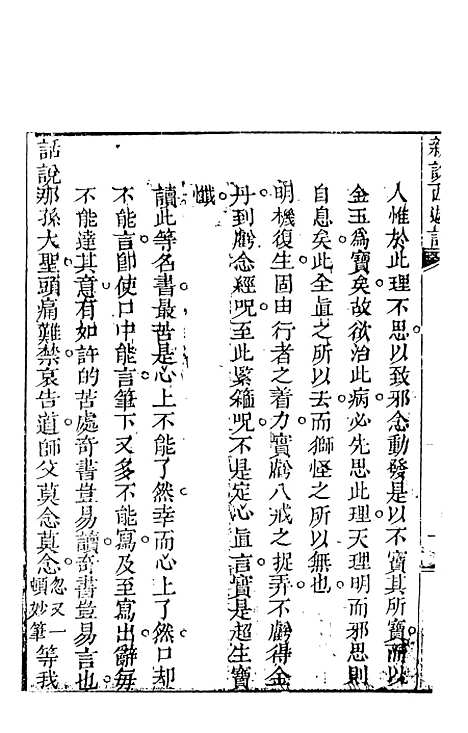 新說西遊記
人惟於此理不思以致邪念動發是以不寶其所寶而以
金玉爲寶矣故欲治此病必先思此理天理明而邪思則
自息矣此全眞之所以去而獅怪之所以無也
明機復生固由行者之着力實虧八戒之捉弄不虧得金
丹到虧念經咒至此緊箍咒不是定心眞言實是超生寶
懺
讀此等名書最苦是心上不能了然幸而心上了然口却
不能言卽使口中能言筆下又多不能寫及至寫出辭每
不能達其意有如許的苦處奇書豈易讀奇書豈易言也
話說那孫大聖頭痛難禁哀告道師父莫念莫念忽又一頓妙筆等我